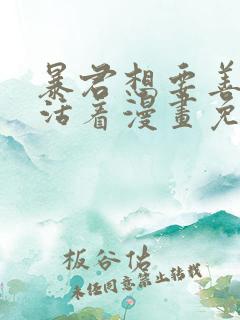 暴君想要善
活着漫畫免
板谷佑
未经同意禁止转载